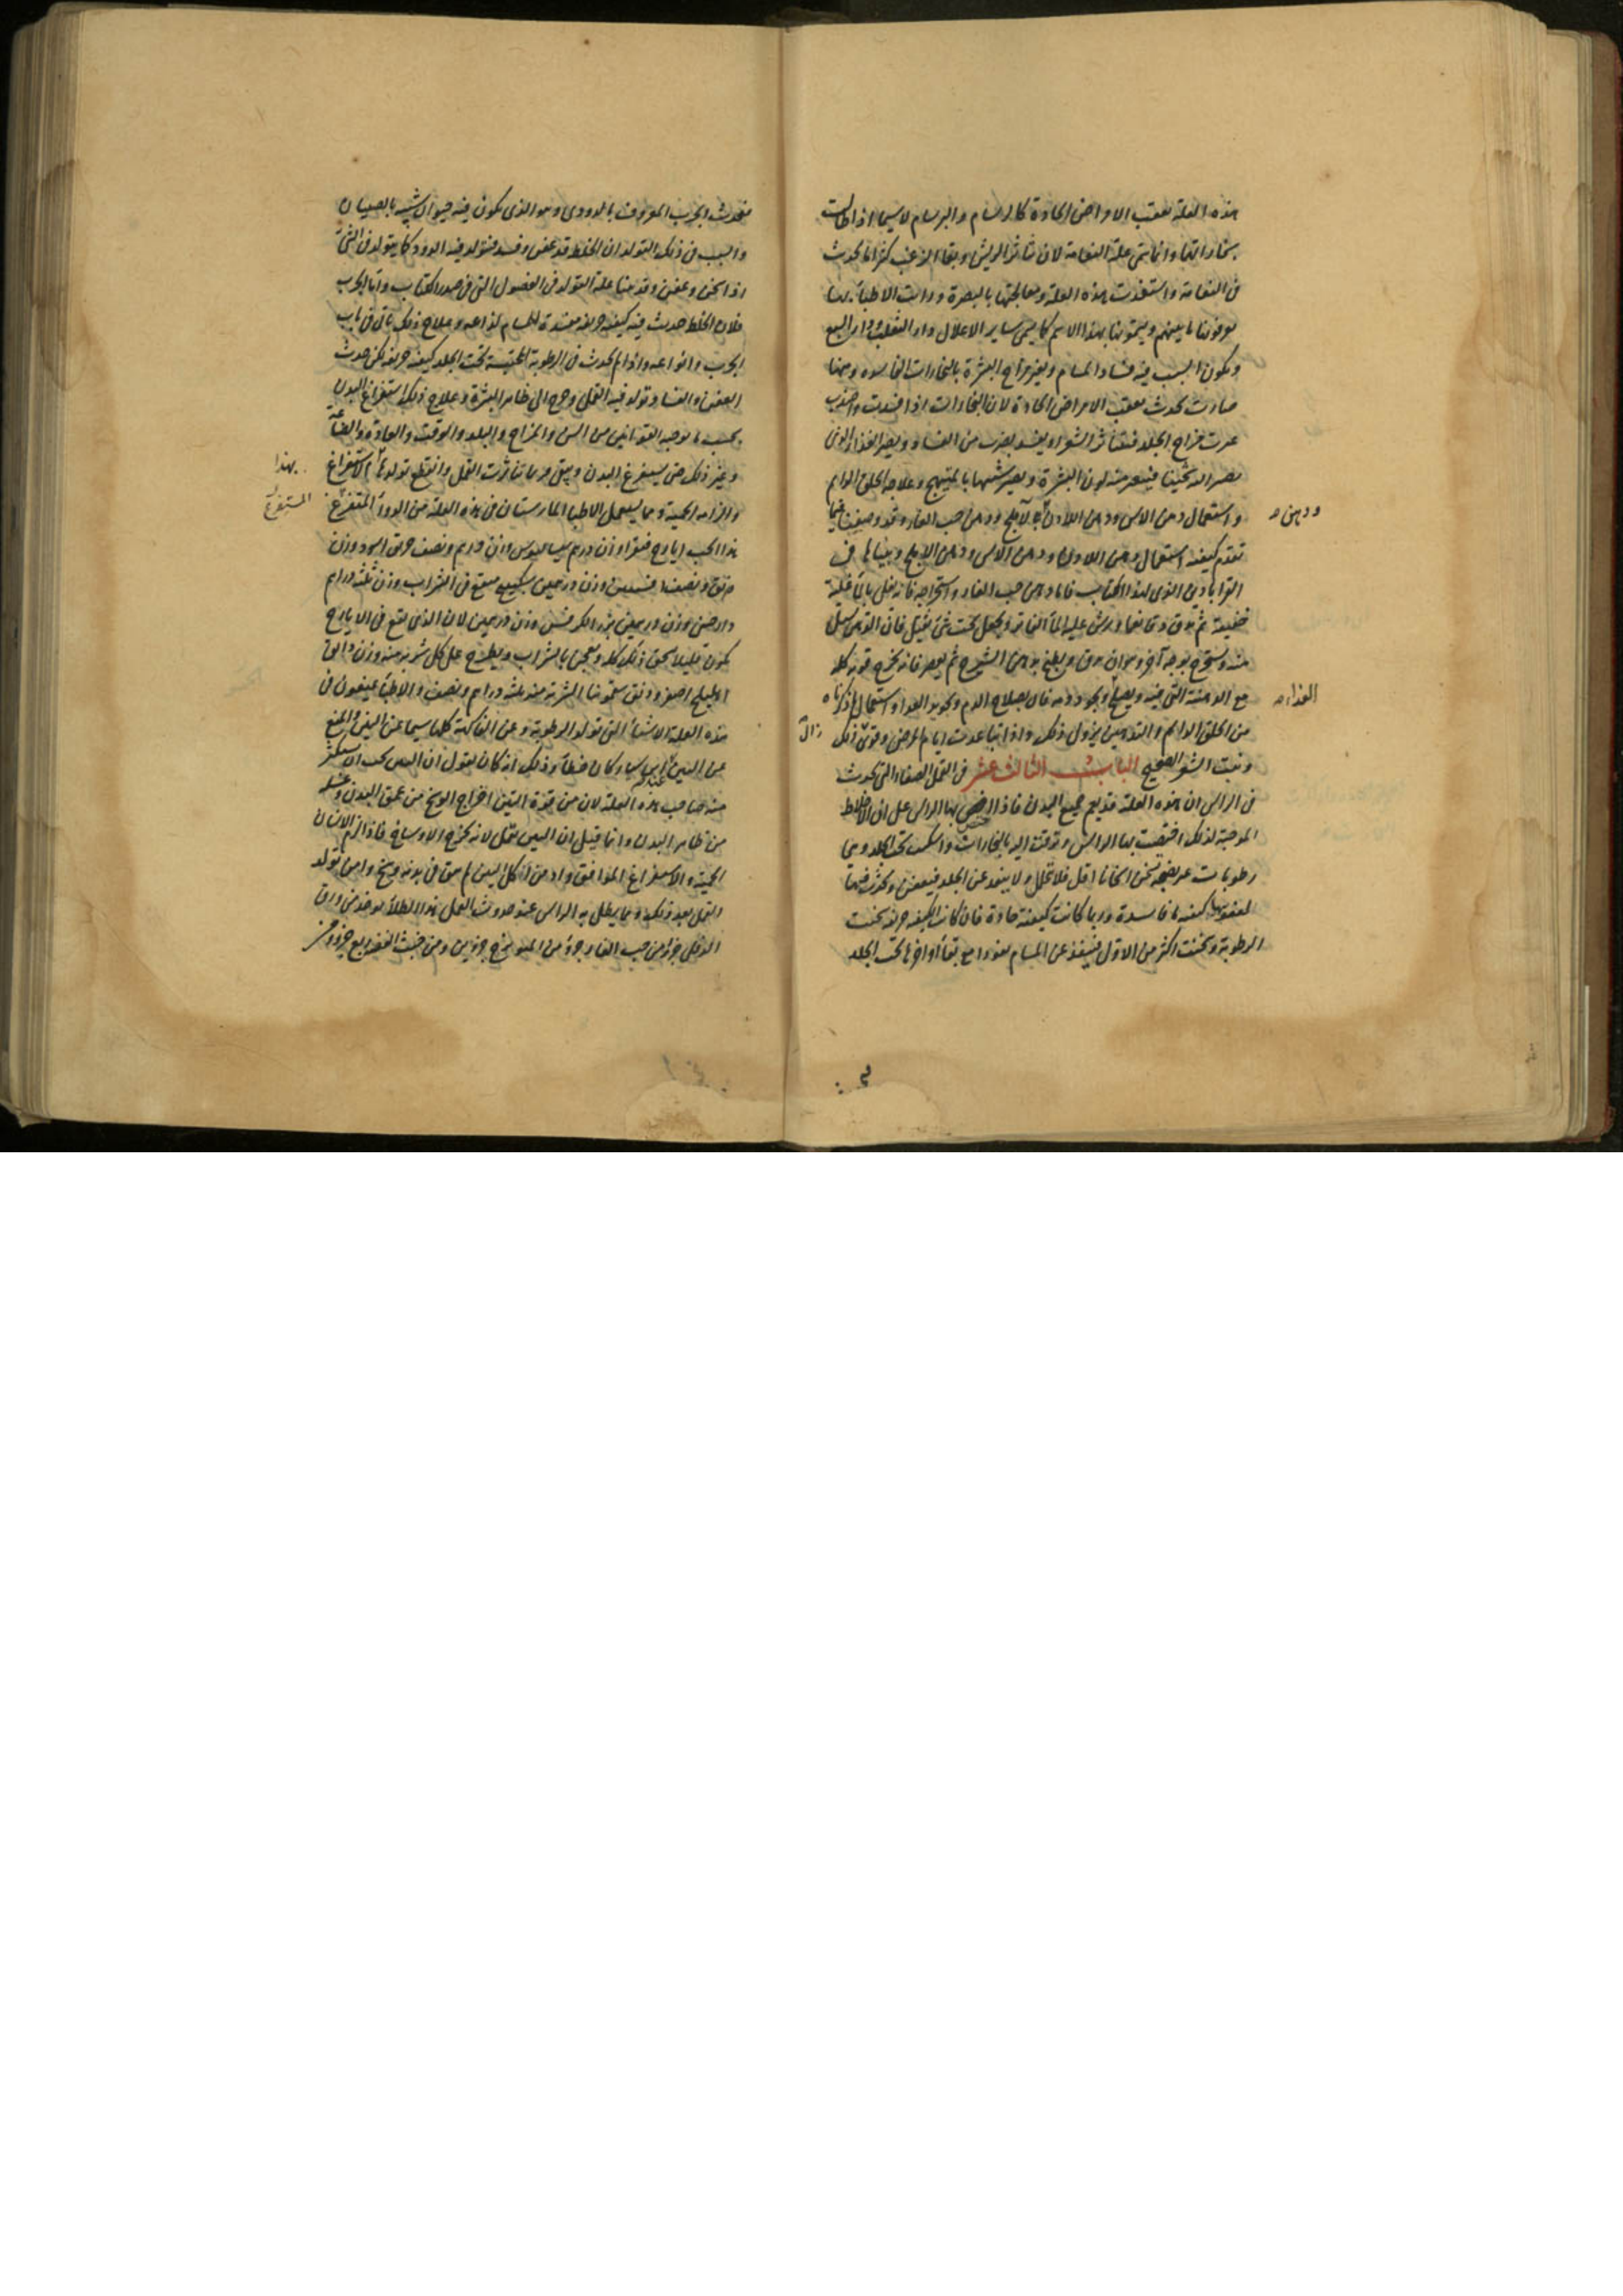 هذه العلة بعقب الامراض الحادة كالسرسام والبرسام لاسيما اذا طالت
بخاراتها وانما سمي علة النعامة لان تناثر الريش وبقاء الزغب كثيرا ما يحدث
في النعامة واستفدت هذه العلة ومعالجتها بالبصرة ورايت الاطباء بها
يعرفونها فيما بينهم ويسمونها بهذا الاسم كما يسمى ساير الاعلال داء الثعلب وداء السبع
ويكون السبب فيه فساد المسام وتغير مزاج البشرة بالبخارات الفاسدة ومنها
صارت تحدث بعقب الامراض الحادة لان البخارات اذا فسدت واحتدت
غيرت مزاج الجلد فيتناثر الشعر او يفسد بضرب من الفساد ويصير الغذاء الذي
يصير اليه ثخينا فيتغير منه لون البشرة ويصير شبيها بالمتهيج وعلاجه الحلق الدايم
واستعمال دهن الآس ودهن اللادن ودهن الآملج ودهن حب الغار وقد وصفنا فيما
ودهن
تقدم كيفية استعمال دهن اللادن ودهن الآس ودهن الاملج وبيناها في
القراباذين الذي لهذا الكتاب فاما دهن حب الغار واستخراجه فانه يغلى بالماء غلية
خفيفة ثم يدق دقا ناعما ويرش عليه الماء الفاتر ويجعل تحت شيء ثقيل فان الدهن يسيل
منه ويستخرج بوجه آخر وهو ان يدق ويطبخ بدهن الشيرج ثم يعصر فانه يخرج قوته كله
مع الدهنية التي فيه ويصلح بجودة فان بصلاح الدم وتجويد الغذاء واستعمال ما ذكرناه
الغذاء
من الحلق الدايم والتدهين يزول ذلك واذا تباعدت ايام المرض وقوي زال ذلك
زال
ونبت الشعر الصحيح الباب الثالث عشر في القمل الصغار التي تحدث
في الراس ان هذه العلة قد يعم جميع البدن فاذا اختص بها الراس دل على ان الاخلاط
الموجبة لذلك اختصت بها الراس وترقت اليه بالبخارات واسكنت تحت الجلد وهي
رطوبات غير نضيجة تسخن اسخانا اقل فلا تتحلل ولا ينفذ عن الجلد فيعفن ويحدث فيها
لعفونتها كيفية ما فاسدة وربما كانت كيفية حادة فان كانت الكيفية حريفة سخنت
الرطوبة وسخنت اكثر من الاول فينفذ عن المسام نفوذا مع بقاء اواخرها تحت الجلد
فيحدث الجرب المعروف بالدودي وهو الذي يكون فيه حيوان شبيه بالصيبان
والسبب في ذلك التولد ان الخلط قد عفن وفسد فتولد فيه الدود كما يتولد في الشيء
اذا سخن وعفن وقد بينا علة التولد في الفصول التي في صدر الكتاب واما الجرب
فلان الخلط حدث فيه كيفية حريفة مفسدة للمسام لذاعة وعلاج ذلك ياتي في باب
الجرب وانواعه واذا لم يحدث في الرطوبة المحتبسة تحت الجلد كيفية حريفة لكن حدث
العفن والفساد تولد فيه القمل وخرج الى ظاهر البشرة وعلاج ذلك استفراغ البدن
بحسب ما توجبه القوانين من السن والمزاج والبلد والوقت والعادة والصناعة
وغير ذلك حتى يستفرغ البدن وينقى وربما تناثرت القمل وانقطع تولدها بالاستفراغ
بهذا
والزامه الحمية ومما يستعمل الاطباء المارستان في هذه العلة من الدواء المتفرغ
المستفرغ
هذا الحب ايارج فيقرا وزن درهم سيساليوس وزن درهم ونصف خربق اسود وزن
دانق ونصف افسنتين وزن درهمين سكبينج منقع في الشراب وزن ثلثة دراهم
دارصيني وزن درهمين بزر الكرفس وزن درهمين لان الذي يقع في الايارج
يكون قليلا يسحق ذلك كله ويعجن بالشراب ويطرح على كل شربة منه وزن دانق
اهليلج اصفر ودانق سقمونيا الشربة منه ثلثة دراهم ونصف والاطباء يمنعون في
هذه العلة الاشياء التي تولد الرطوبة وعن الفاكهة كلها سيما عن التين والمنع
عن التين ابن سيار كان خطأ وذلك انه كان يقول ان التين يجب ان يستكثر
عندهم
منه صاحب هذه العلة لان من قوة التين اخراج الوسخ من عمق البدن وغسله
من ظاهر البدن وانما قيل ان التين يقمل لانه يخرج الاوساخ فاذا لزم الانسان
الحمية والاستفراغ الموافق وادمن اكل التين لم يبق في بدنه وسخ وامن تولد
القمل بعد ذلك ومما يطلى به الراس عند حدوث القمل هذا الطلاء يوخذ من ورق
الدفلى جزء ومن حب الغار جزء ومن الميويزج جزئين ومن خبث الفضة ربع جزو ومن